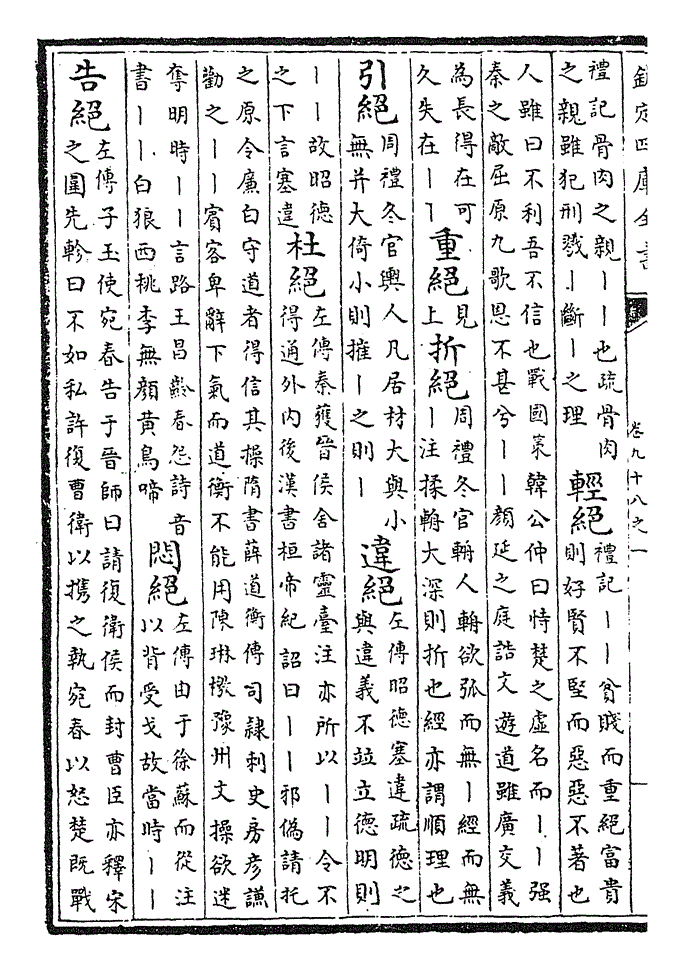 欽定四庫全書
卷九十八之一
禮記骨肉之親丨丨也疏骨肉
之親雖犯刑戮丨斷丨之理
輕絕
禮記丨丨貧賤而重絕富貴
則好賢不堅而惡惡不著也
人雖曰不利吾不信也戰國策韓公仲曰恃楚之虛名而丨丨强
秦之敵屈原九歌恩不甚兮丨丨顔延之庭誥文遊道雖廣交義
為長得在可
久失在丨丨
重絕
見
上
折絕
周禮冬官輈人輈欲弧而無丨經而無
丨注揉輈大深則折也經亦謂順理也
引絕
周禮冬官輿人凡居材大與小
無并大倚小則摧丨之則丨
違絕
左傳昭德塞違疏德之
與違義不竝立德明則
丨丨故昭德
之下言塞違
杜絕
左傳秦獲晉侯舍諸靈臺注亦所以丨丨令不
得通外内後漢書桓帝紀詔曰丨丨邪偽請托
之原令廉白守道者得信其操隋書薛道衡傳司隸刺史房彦謙
勸之丨丨賓客卑辭下氣而道衡不能用陳琳檄豫州文操欲迷
奪明時丨丨言路王昌齡春怨詩音
書丨丨白狼西桃李無顔黄鳥啼
悶絕
左傳由于徐蘇而從注
以背受戈故當時丨丨
告絕
左傳子玉使宛春告于晉師曰請復衛侯而封曹臣亦釋宋
之圍先軫曰不如私許復曹衛以攜之執宛春以怒楚既戰